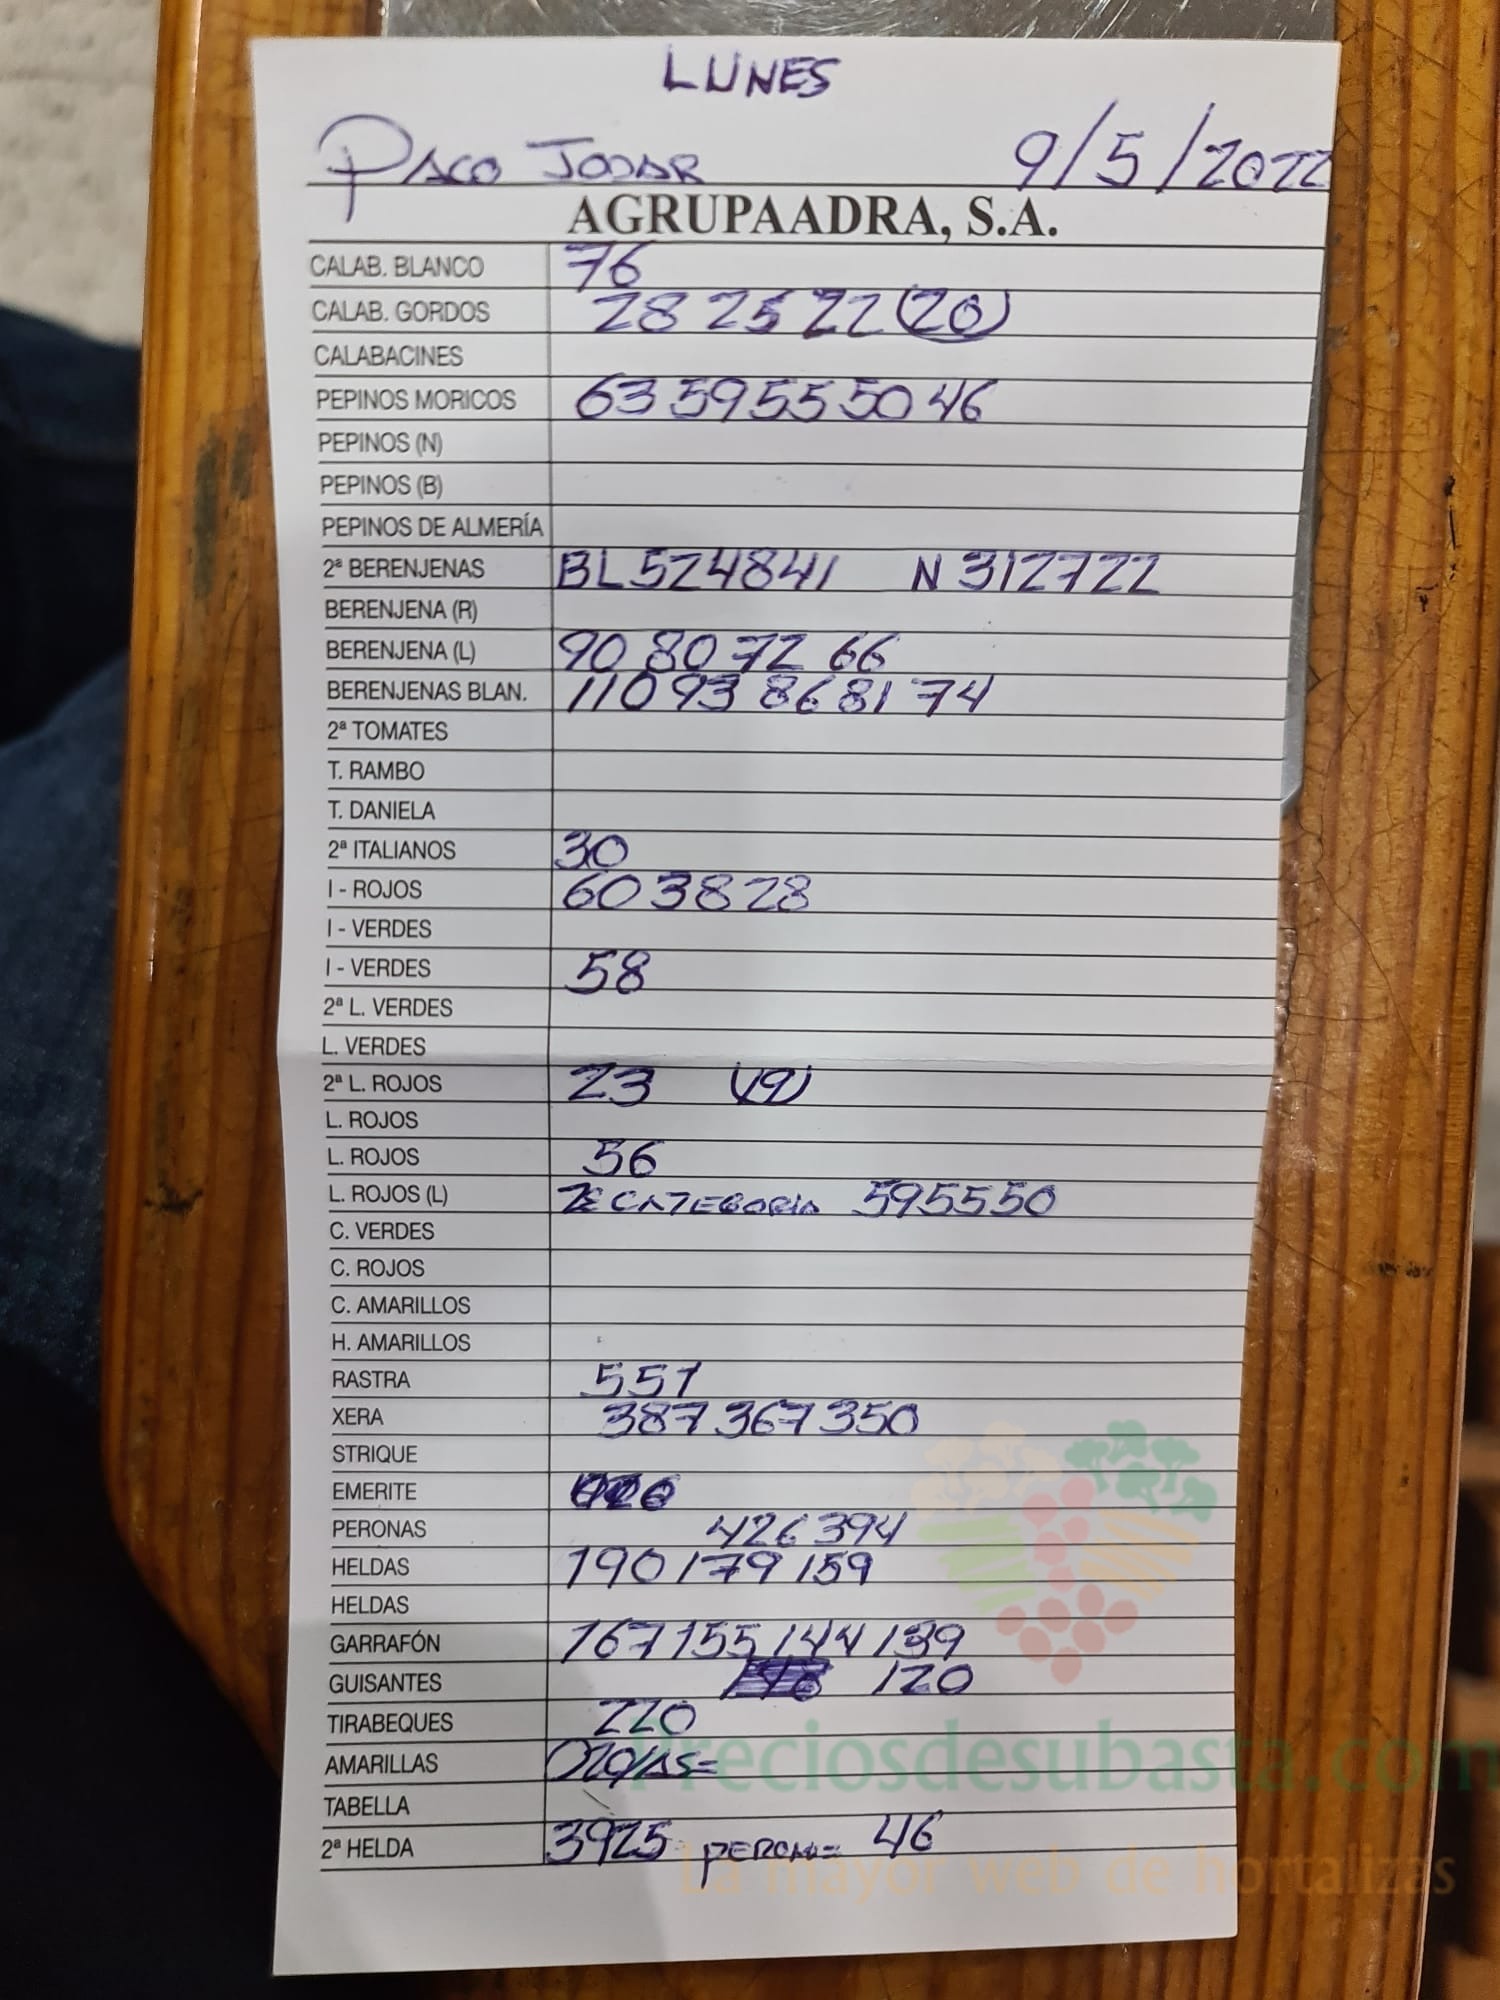 LUNES
PACO JODAR 9/5/2022
AGRUPAADRA, S.A.
CALAB. BLANCO 76
CALAB. GORDOS 28 25 22 (20)
CALABACINES
PEPINOS MORICOS 63 59 55 50 46
PEPINOS (N)
PEPINOS (B)
PEPINOS DE ALMERÍA
2ª BERENJENAS BL 52 48 41 N 31 27 22
BERENJENA (R)
BERENJENA (L) 90 80 72 66
BERENJENAS BLAN. 110 93 86 81 74
2ª TOMATES
T. RAMBO
T. DANIELA
2ª ITALIANOS 30
I - ROJOS 60 38 28
I - VERDES
I - VERDES 58
2ª L. VERDES
L. VERDES
2ª L. ROJOS 23 (19)
L. ROJOS
L. ROJOS 56
L. ROJOS (L) CATEGORIA 59 55 50
C. VERDES
C. ROJOS
C. AMARILLOS
H. AMARILLOS
RASTRA 551
XERA 387 367 350
STRIQUE
EMERITE
PERONAS 426 394
HELDAS 190 179 159
HELDAS
GARRAFÓN 167 155 144 139
GUISANTES 120
TIRABEQUES 220
AMARILLAS
TABELLA
2ª HELDA 39 25 PERONA= 46
Preciosdesubasta.com
La mayor web de hortalizas